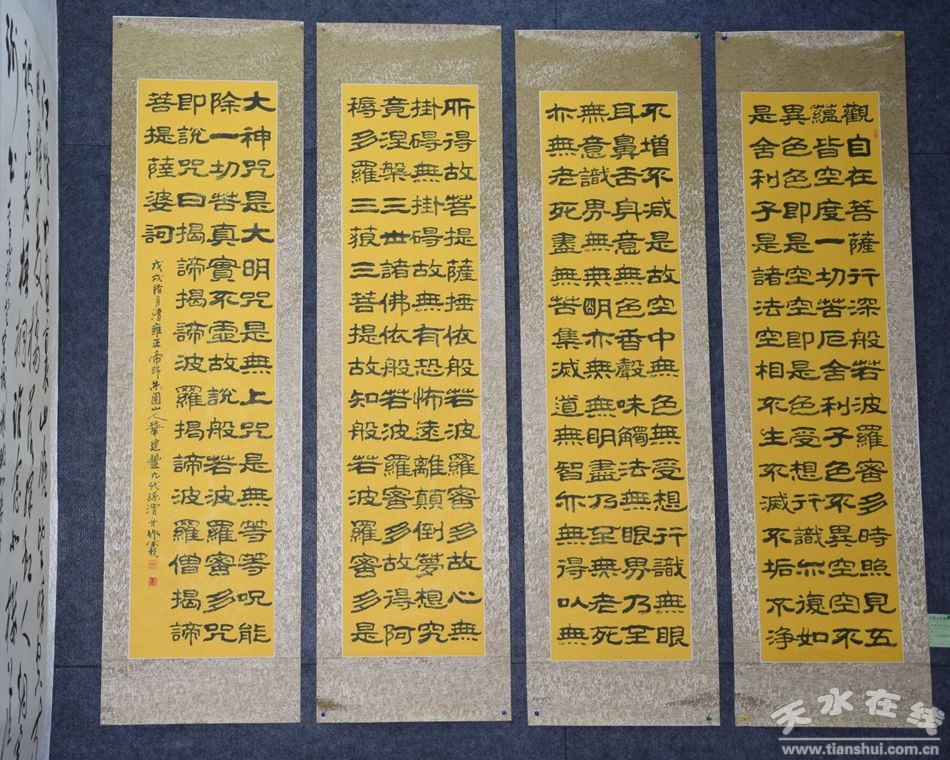 觀自在菩薩行深般若波羅審多時照見五
蘊皆空度一切苦厄舍利子色不異空空不
異色色即是空空即是色受想行識亦復如
是舍利子是諸法空相不生不滅不垢不淨
不增不减是故空中無色無受想行識無眼
耳鼻舌身意無色香聲味觸法無眼界乃至
無意識界無無明亦無無明盡乃至無老死
亦無老死盡無苦集滅道無智亦無得以無
所得故菩提薩埵依般若波羅審多故心無
掛礙無掛礙故無有恐怖遠離顛倒夢想究
竟涅槃三世諸佛依般若波羅審多故得阿
耨多羅三藐三菩提故知般若波羅審多是
大神咒是大明咒是無上咒是無等等呪能
除一切苦真實不虛故說般若波羅審多咒
即說咒曰揭諦揭諦波羅揭諦波羅僧揭諦
菩提薩婆訶
戊戌腊月清雍正帝師朱圉山人鞏建豐九代孫渭
天水在线
www.tianshui.com.cn